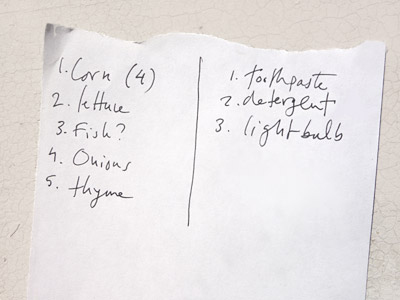 1. Corn (4)
2. lettuce
3. Fish?
4. Onions
5. thyme
1. toothpaste
2. detergent
3. lightbulb